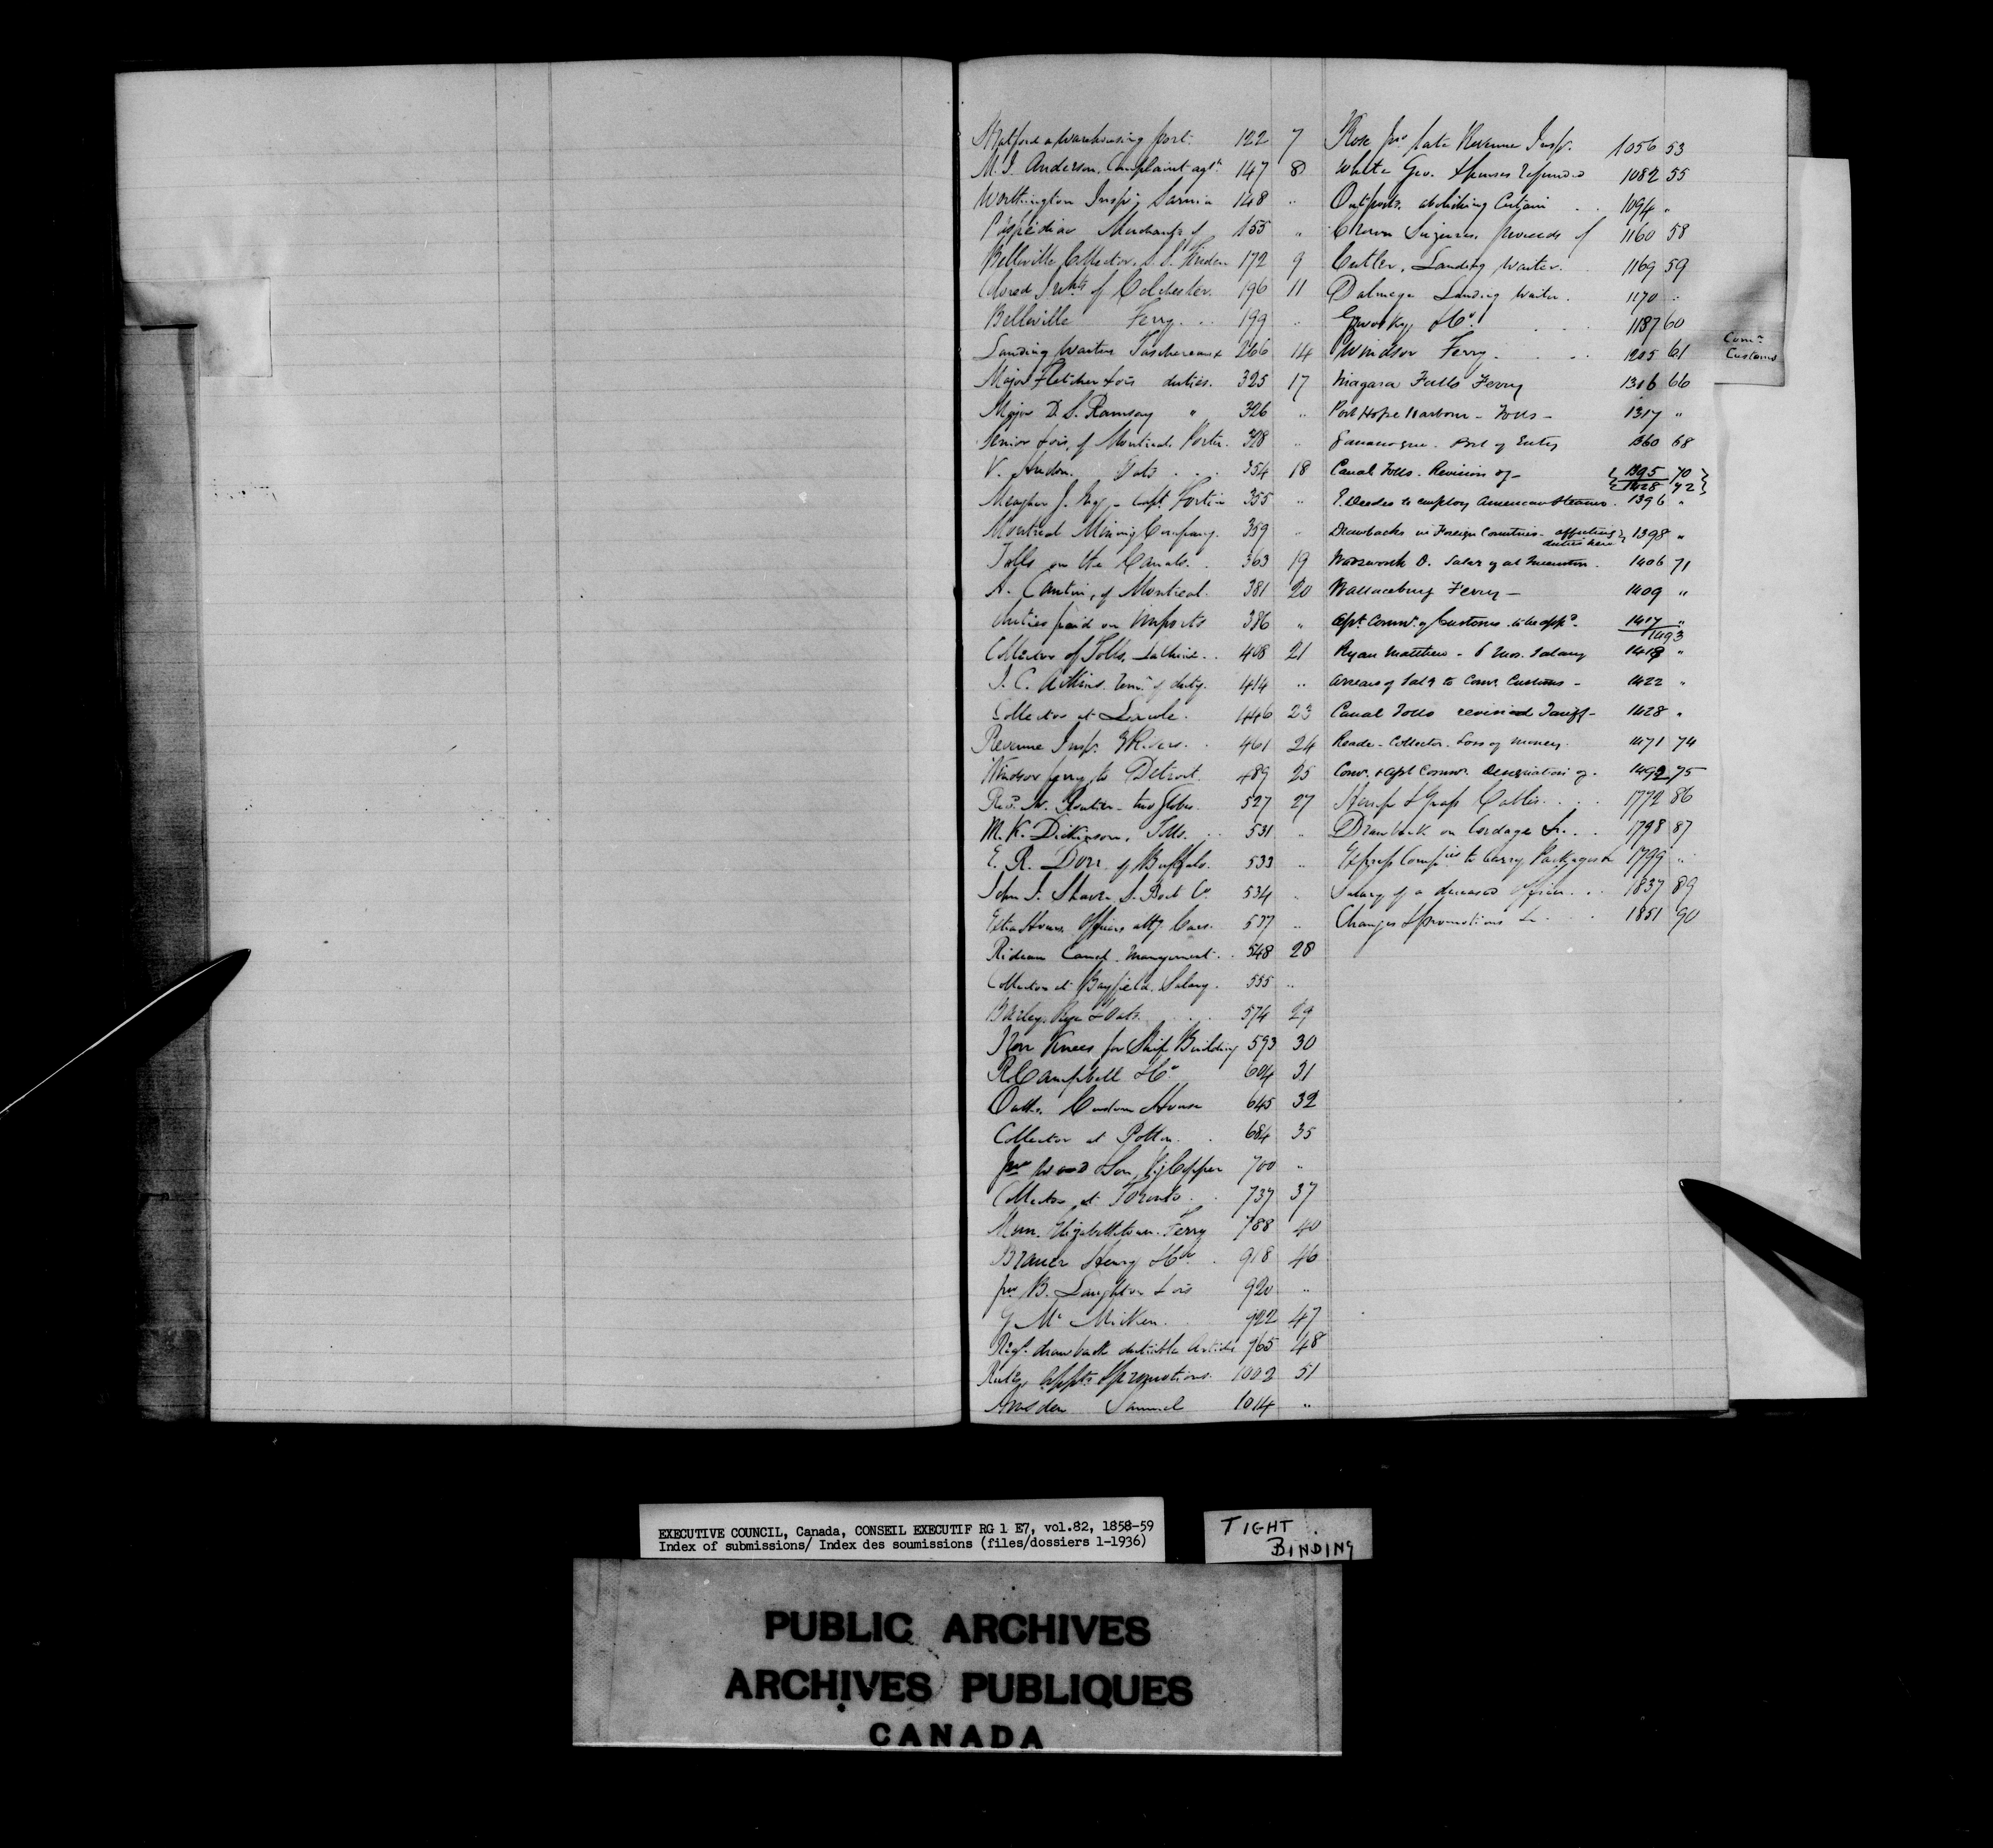 Stratford a Warehousing port. 122 7
M. J. Anderson. Complaint agt. 147 8
Worthington Inspr Sarnia 148 "
Paspebiac Merchants of 155 "
Belleville Collector. S. S. 172 9
Colored Inhts of Colchester. 196 11
Belleville Ferry. 199 "
Landing Waiters Taschereau 266 14
Major Fletcher & ors duties. 325 17
Major D. S. Ramsay " 326 "
Senior & ors, of Montreal. Porter. 328 "
V. Hudon. Oats 354 18
Meagher J. - Capt. Fortin 355 "
Montreal Mining Company. 359 "
Tolls on the Canals. 363 19
A. Cantin, of Montreal. 381 20
duties paid on imports 386 "
Collector of Tolls, Lachine. 408 21
J. C. Aikins. Remn. of duty. 414 "
Collector at Lacolle. 446 23
Revenue Inspr. 461 24
Windsor ferry to Detroit. 489 25
Revd. N. - two Globes. 527 27
M. K. Dickinson. Tolls. 531 "
E. R. Dorr of Buffalo. 533 "
John J. S. Boat Co. 534 "
Extra Hours. Officers attg Cars. 537 "
Rideau Canal. Management. 548 28
Collector at Bayfield. Salary. 555 "
Barley. Rye & Oats. 574 29
Iron Knees for Ship Building 593 30
R. Campbell & Co. 604 31
Oaths. Custom House 645 32
Collector at Potton. 684 35
Jno Wood & Son, Copper 700 "
Collector at Toronto. 737 37
Mun. Elizabethtown. Ferry 788 40
Brauer Henry & Co. 918 46
Jno B. Laughton & ors 920 "
G McMicken. 922 47
Regs. drawback dutiable Articles 965 48
Rules, Appts & promotions. 1002 51
Samuel 1014 "
Rose Jno late Revenue Inspr. 1056 53
White Geo. Spences refunded 1082 55
Outports. abolishing Certain 1094 "
Crown Seizures. proceeds of 1160 58
Cutler, Landing Waiter. 1169 59
Dalmage Landing Waiter. 1170 "
Gzowsky, & Co. 1187 60
Windsor Ferry. 1205 61
Niagara Falls Ferry 1316 66
Port Hope Harbour - Tolls - 1317 "
Gananoque. Port of Entry 1360 68
Canal Tolls. Revision of - { 1395 70 }
{ 1428 72 }
P. Deedes to employ American Steamer. 1396 "
Drawbacks in Foreign Countries - affecting 1398 "
duties here
Wadsworth O. Salary at 1406 71
Wallaceburg Ferry - 1409 "
Asst. Commr. of Customs to be appd. 1417 "
1493
Ryan Matthew - 6 mos. Salary 1418 "
Arrears of Saly to Comr. Customs - 1422 "
Canal Tolls revised Tariff - 1428 "
Reade - Collector. Loss of money. 1471 74
Comr. & Asst Commr. Designation of. 1492 75
Hemp & Grass Cables. 1772 86
Drawback on Cordage &c. 1798 87
Express Companies to Carry Packages &c 1799 "
Salary of a deceased Officer. 1837 89
Changes & promotions &c 1851 90
Comr.
Customs
EXECUTIVE COUNCIL, Canada, CONSEIL EXECUTIF RG 1 E7, vol.82, 1858-59
Index of submissions/ Index des soumissions (files/dossiers 1-1936)
TIGHT
BINDING
PUBLIC ARCHIVES
ARCHIVES PUBLIQUES
CANADA